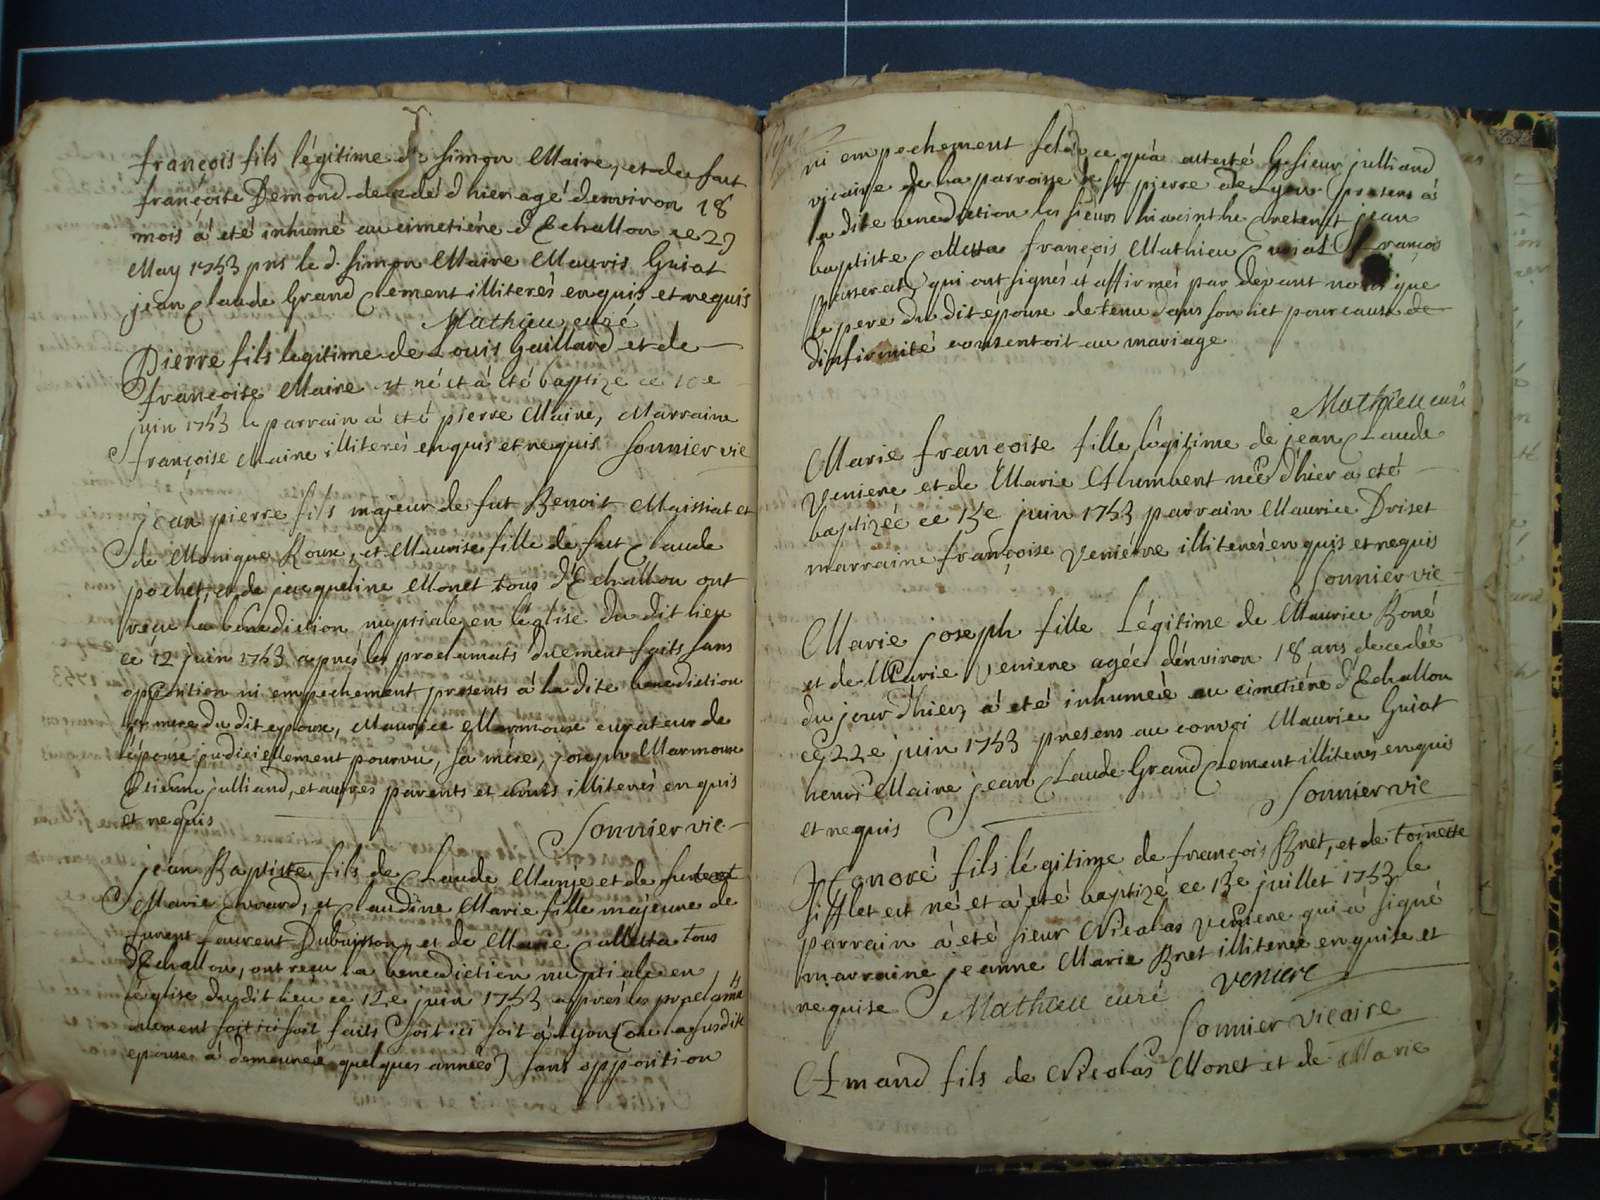 françois fils légitime de simon Maire, et de fut
françoise Demond decedé d'hier agé d'environ 18
mois à été inhumé au cimetiére d'Echallon ce 29
May 1753 pns le d. simon Maire Mauris Guiot
jean Claude Grand Clement illiterés enquis et requis
Mathieu curé
Pierre fils legitime de Louis Gaillard et de
françoise Maire est né et à été baptizé ce 10e
juin 1753 le parrain à été pierre Maire, Marraine
françoise Maire illiterés enquis et requis Sonnier vic
jean pierre fils majeur de fut Benoit Maissiat et
de Monique Roux, et Maurise fille de fut Claude
pochet, et de jacqueline Monet tous d'Echallon ont
recu la bénédiction nuptiale en l'église du dit lieu
ce 12 juin 1753 après les proclamats duement faits sans
opposition ni empechement presents à la dite benediction
la mere du dit epoux, Maurice Marmoux curateur de
l'épouse judiciellement pourvu, sa mère, joseph Marmoux
Etienne julliand, et autres parents et amis illiterés enquis
et requis Sonnier vic
jean Baptiste fils de Claude Manje et de
Marie Evrard, et Claudine Marie fille majeure de
laurent Dubuisson, et de Marie Calletta tous
d'Echallon, ont recu la benediction nuptiale en
l'église du dit lieu ce 12e juin 1753 après les proclamā
duement faits soit ici soit à Lyon (ou la susditte
epouse à demeureé quelques années) sans opposition
ni empechement selon ce qu'a attesté le sieur julliand
vicaire de la parroisse de st pierre de Lyon presens à
la dite benediction les sieurs hiacinthe jean
baptiste Calletta françois Mathieu françois
passerat qui ont signés et affirmés par devant nous que
le pere du dit epoux detenu dans son lict pour cause de
d'infirmité consentoit au mariage
Mathieu curé
Marie françoise fille légitime de jean Claude
Veniere et de Marie Humbert née d'hier à été
baptizée ce 13e juin 1753 parrain Maurice Driset
marraine françoise Veniérre illiterés enquis et requis
Sonnier vic
Marie joseph fille Légitime de Maurice Boné
et de Marie Veniere agée d'environ 18 ans decedée
du jour d'hier, à été inhumeé au cimetiére d'Echallon
ce 22e juin 1753 presens au convoi Maurice Guiot
henri Maire jean Claude Grand Clement illiterés enquis
et requis Sonnier vic
Honoré fils légitime de françois Bret, et de toinette
sifflet est né et à été baptizé ce 13e juillet 1753 le
parrain à été sieur Nicolas Veniere qui à signé
marraine jeanne Marie Bret illiterée enquise et
requise Mathieu curé Veniere
Sonnier vicaire
Amand fils de Nicolas Monet et de Marie